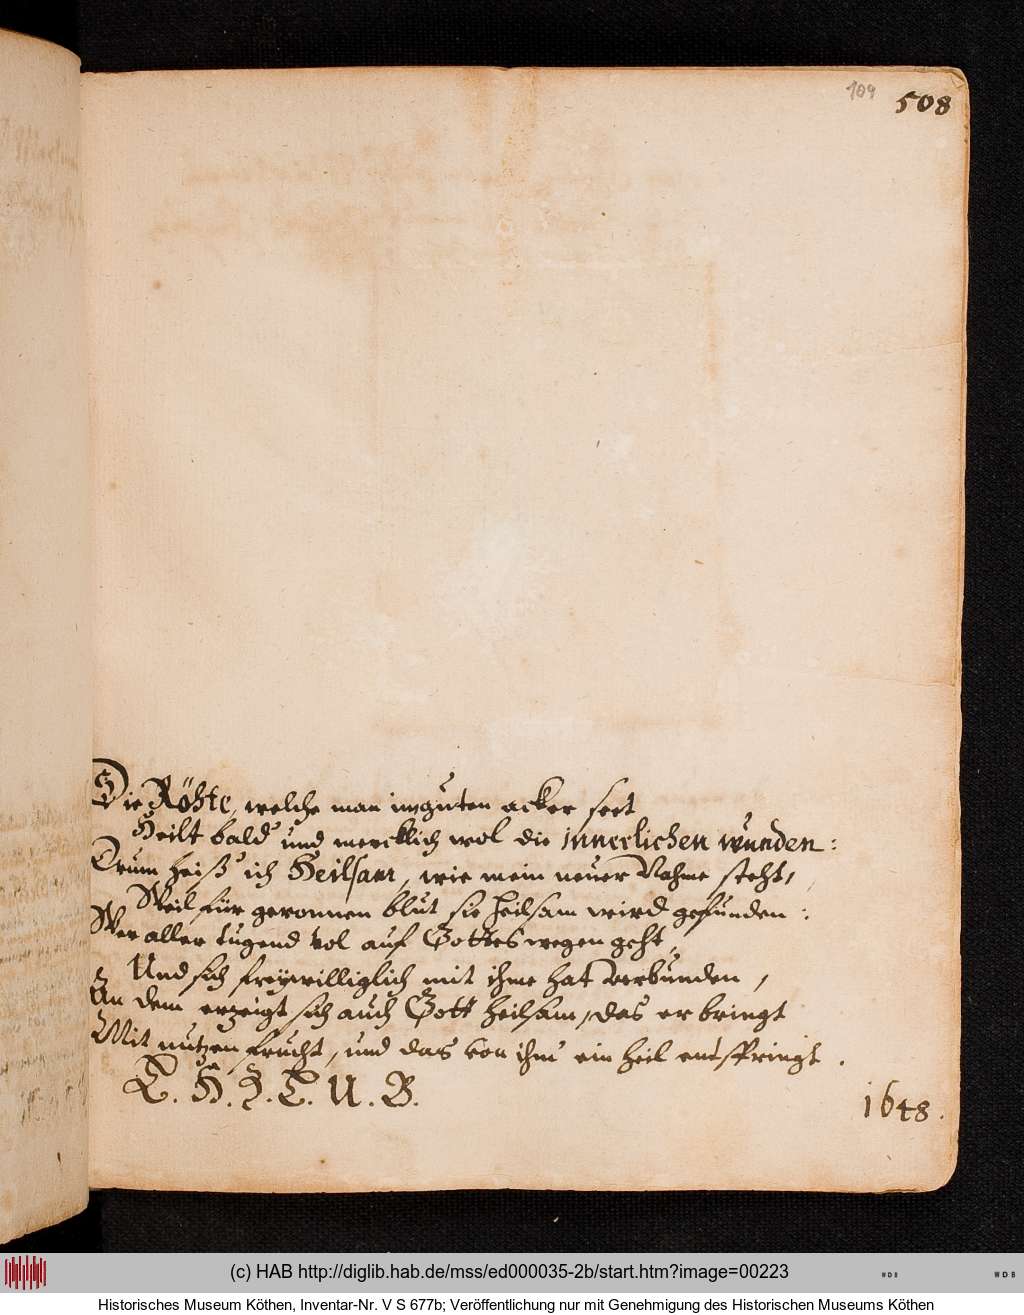 109
508
Die Röhte, welche man im guten acker seet
Heilt bald und mercklich wol die innerlichen wunden:
Drum heiß ich Heilsam, wie mein neuer Nahme steht,
Weil für geronnen blut sie heilsam wird gefunden:
Wer aller tugend vol auf Gottes wegen geht,
Und sich freywilliglich mit ihme hat verbunden,
An dem erzeigt sich auch Gott heilsam, das er bringt
Mit nutzen frucht, und das von ihm ein heil entspringt.
C. H. Z. C. U. B.
1648.
(c) HAB http://diglib.hab.de/mss/ed000035-2b/start.htm?image=00223
WDB
WDB
Historisches Museum Köthen, Inventar-Nr. V S 677b; Veröffentlichung nur mit Genehmigung des Historischen Museums Köthen